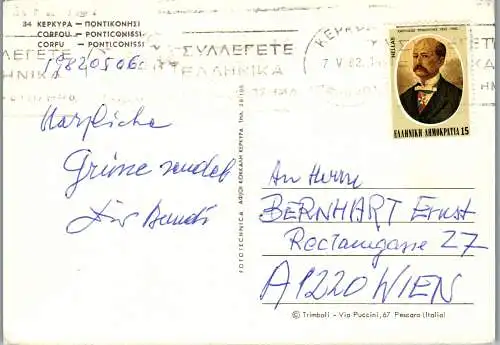 34 ΚΕΡΚΥΡΑ — ΠΟΝΤΙΚΟΝΗΣΙ
CORFOU — PONTICONISSI
CORFU — PONTICONISSI
ΣΥΛΛΕΓΕΤΕ
ΕΛΛΗΝΙΚΑ
7 V 82
HELLAS
ΕΛΛΗΝΙΚΗ ΔΗΜΟΚΡΑΤΙΑ 15
19820506
Herzliche
Grüsse sendet
FOTOTECHNICA ΑΦΟΙ ΚΟΚΚΑΛΗ ΚΕΡΚΥΡΑ
An Herrn
BERNHART Ernst
Rectamgasse 27
A1220 WIEN
© Trimboli - Via Puccini, 67 Pescara (Italia)